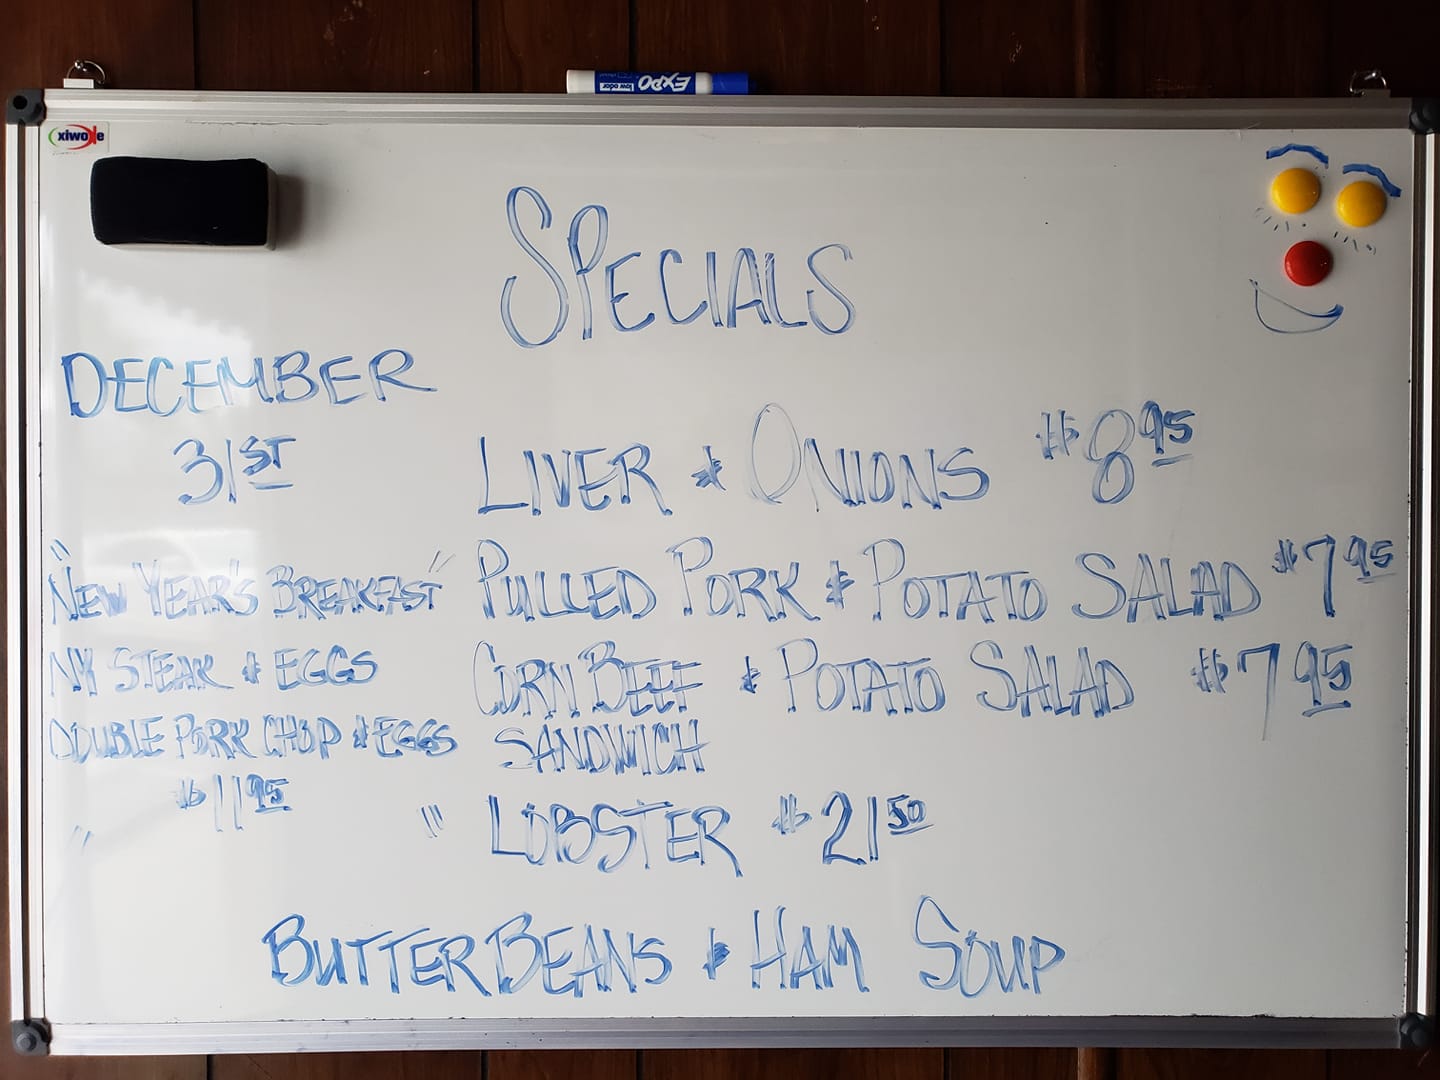 EXPO
low odor
xiwoke
SPECIALS
DECEMBER
31ST
"NEW YEAR'S BREAKFAST"
NY STEAK & EGGS
DOUBLE PORK CHOP & EGGS
$11 95
" "
LIVER & ONIONS $8 95
PULLED PORK & POTATO SALAD $7 95
CORN BEEF & POTATO SALAD $7 95
SANDWICH
LOBSTER $21 50
BUTTER BEANS & HAM SOUP